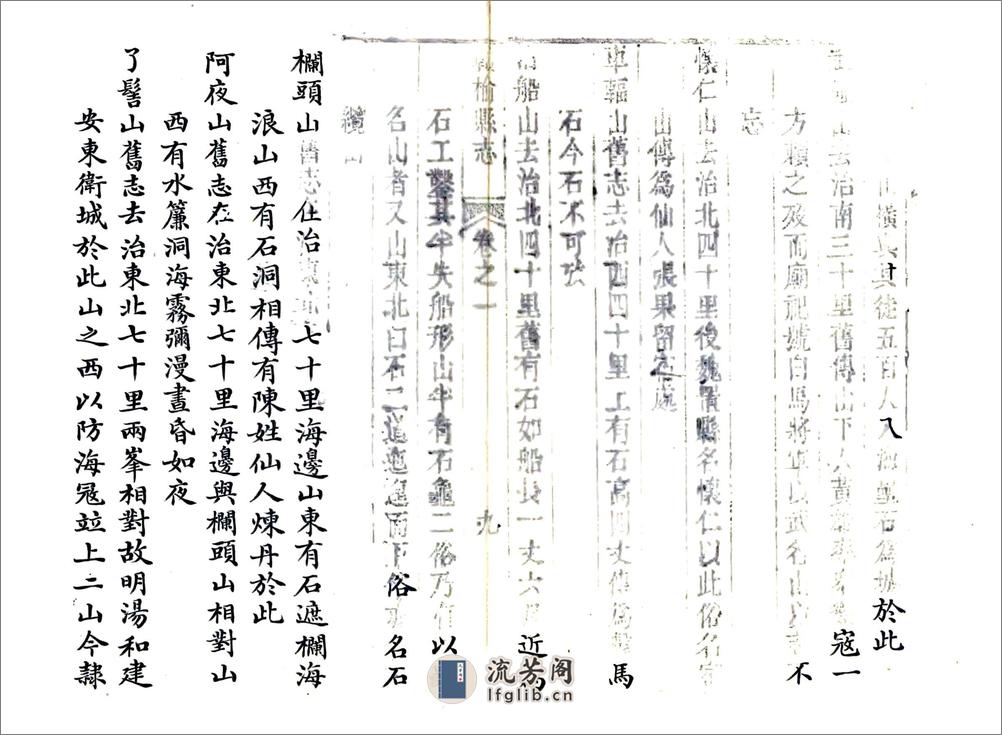 橫與其徒五百人入海壘石為城於此
山去治南三十里舊傳山下人黃寇一
方賴之歿而廟祀號白馬將軍以武名山不
忘
懷仁山去治北四十里後魏置縣名懷仁以此俗名
山傳為仙人張果留處
車輻山舊志去治西四十里上有石高四丈傳為繫馬
石今石不可攷
船山去治北四十里舊有石如船長一丈六尺近為
榆縣志 卷之一 九
石工鑿其半失船形山半有石龜二俗乃有以
名山者又山東北曰石二邐迤而下俗名石
纜山
欄頭山舊志在治東北七十里海邊山東有石遮欄海
浪山西有石洞相傳有陳姓仙人煉丹於此
阿夜山舊志在治東北七十里海邊與欄頭山相對山
西有水簾洞海霧彌漫晝昏如夜
了髻山舊志去治東北七十里兩峯相對故明湯和建
安東衛城於此山之西以防海寇竝上二山今隸
流芳阁
lfglib.cn